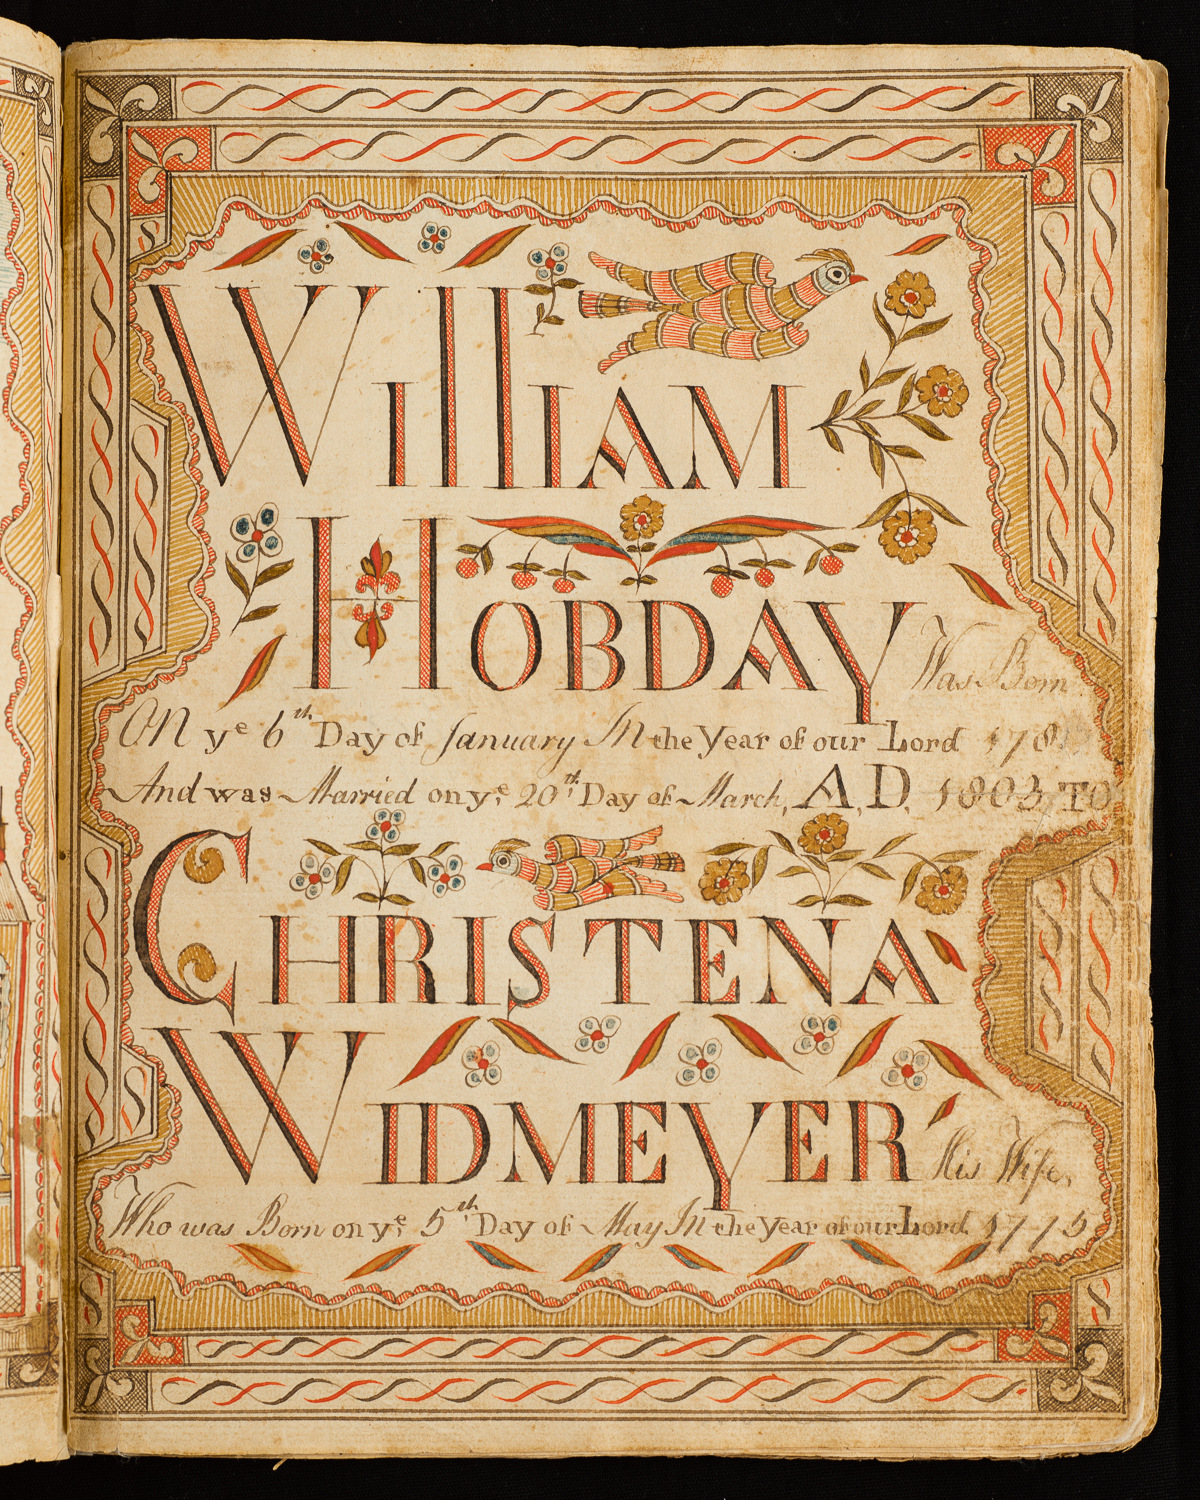 William
Hobday Was Born
On ye 6th Day of January In the year of our Lord 178
And was Married on ye 20th Day of March, A,D, 1803, To
Christena
Widmeyer His Wife,
Who was Born on ye 5th Day of May In the year of our Lord 1775